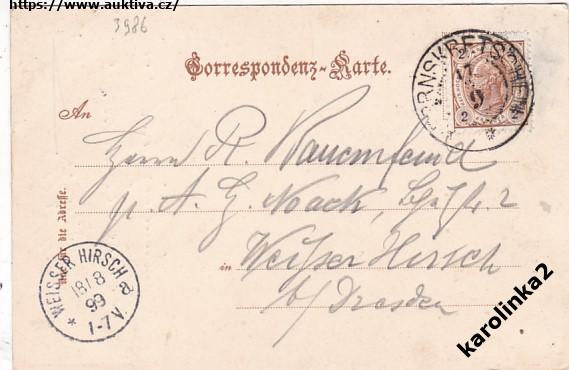 https://www.auktiva.cz/
3986
Correspondenz-Karte.
2
17
9
An
Herrn R. Rauenfeld
p. A. G. Noack, 2
in Weißer Hirsch
b/ Dresden
die Adresse.
WEISSER HIRSCH
18/8
99
1-7 V.
* a
karolinka2